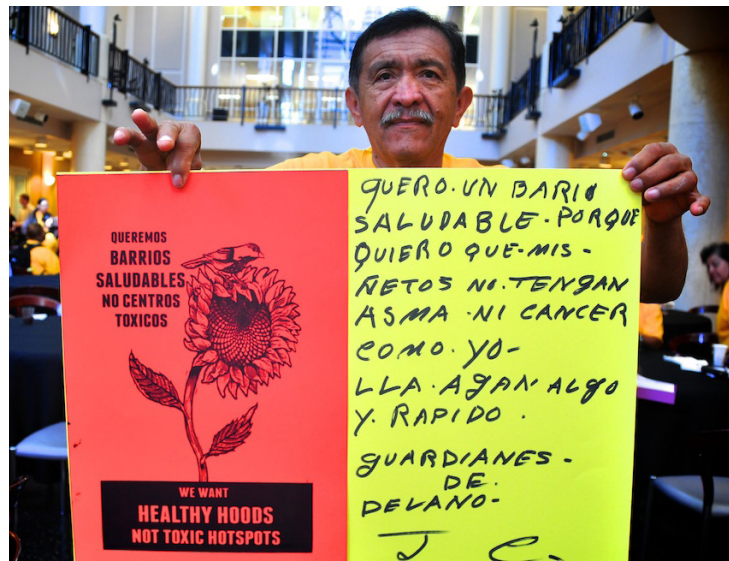 QUEREMOS
BARRIOS
SALUDABLES
NO CENTROS
TOXICOS
WE WANT
HEALTHY HOODS
NOT TOXIC HOTSPOTS
QUERO. UN BARIO
SALUDABLE. PORQUE
QUIERO QUE-MIS-
ÑETOS NO. TENGAN
ASMA. NI CANCER
COMO. YO-
LLA. AGAN ALGO
Y. RAPIDO.
GUARDIANES-
DE.
DELANO-
J C